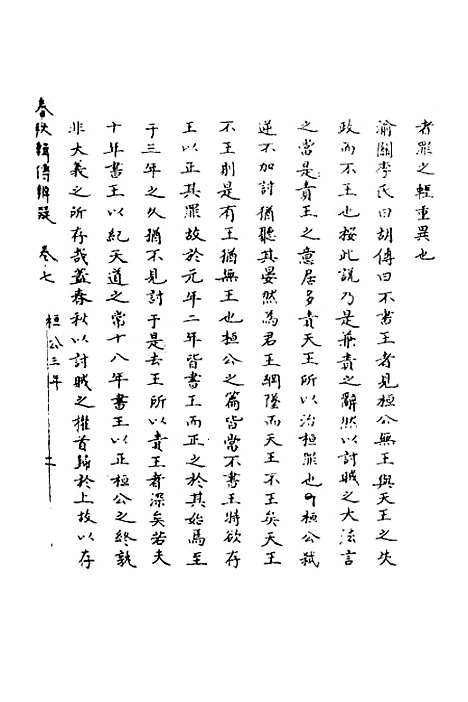 者罪之輕重異也
渝關李氏曰胡傳曰不書王者見桓公無王與天王之失
政而不王也按此說乃是兼責之辭然以討賊之大法言
之當是責王之意居多責天王所以治桓罪也何桓公弒
逆不加討猶聽其晏然為君王綱墜而天王不王矣天王
不王則是有王猶無王也桓公之篇皆當不書王特欲存
王以正其罪故於元年二年皆書王而正之於其始焉至
于三年之久猶不見討于是去王所以責王者深矣若夫
十年書王以紀天道之常十八年書王以正桓公之終孰
非大義之所存哉蓋春秋以討賊之權首歸於上故以存
春秋輯傳辨疑 卷七 桓公三年 二